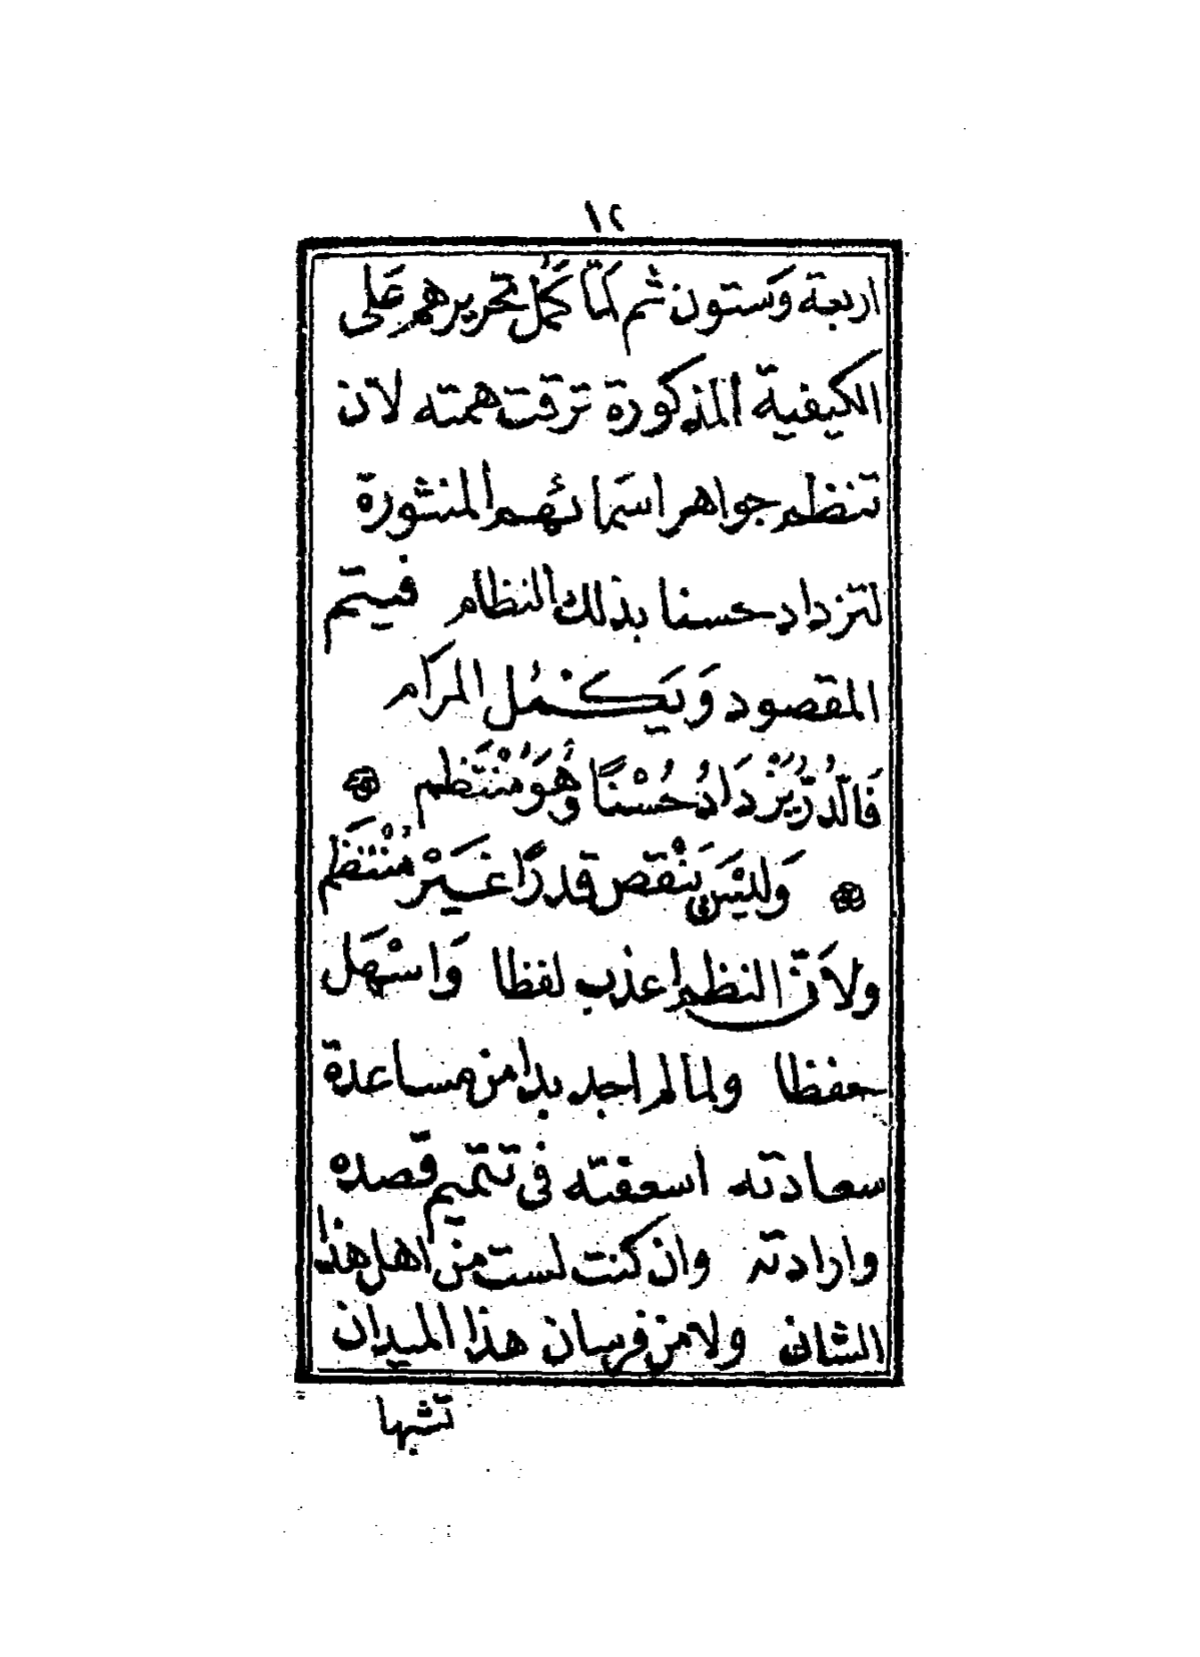 ١٢
اربعة وَستون ثم لَمّا كَمُل تحريرهم عَلى
الكيفية المذكورة ترقت همته لان
تنظم جواهر اسَمائهم المنثورة
لتزداد حسنا بذلك النظام فيتم
المقصود وَيَكمُل المرَام
فَالدُّرُّ يَزْدَادُ حُسْنًا وَهُوَ مُنْتَظِم
وَلَيْسَ يَنْقص قدرًا غَيْرَ مُنْتَظِم
ولاَنّ النظم اعذب لفظا وَاسْهَل
حفظا ولما لم اجد بدا من مساعدة
سعادته اسعفته فى تتميم قصده
وارادته وان كنت لست من اهل هذا
الشان ولا من فرسان هذا الميدان
تشبها